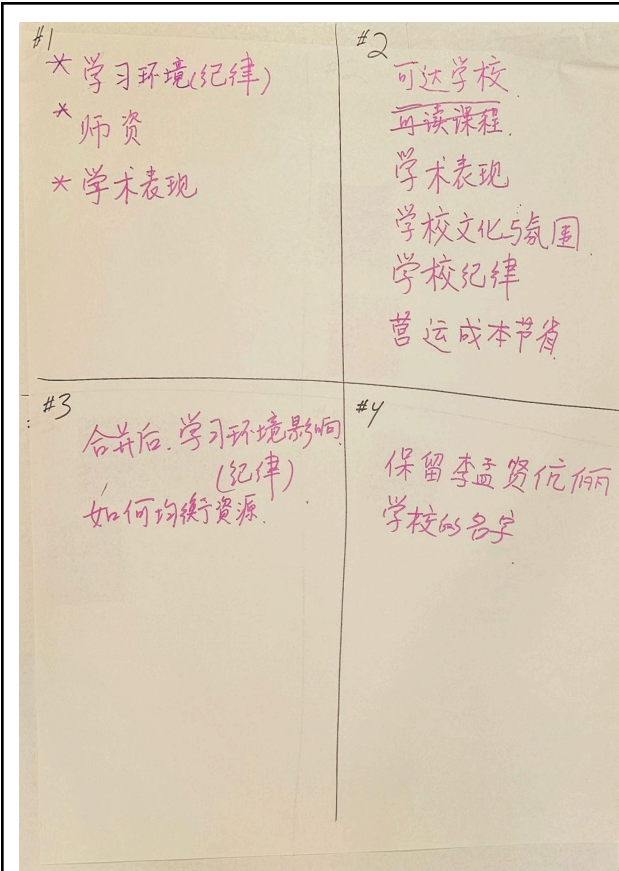 #1
* 学习环境(纪律)
* 师资
* 学术表现
#2
可达学校
可读课程
学术表现
学校文化与氛围
学校纪律
营运成本节省
#3
合并后.学习环境影响
(纪律)
如何均衡資源.
#4
保留李孟贤伉俪
学校的名字